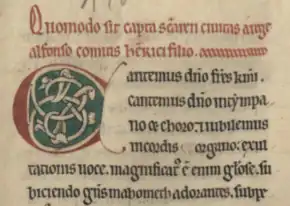 Quomodo sit capta scaren ciuitas a rege
alfonso comitis hērici filio
Cantemus dn̄o frēs km̄i.
cantemus dn̄o in tympa
no et choro: iubilemus
in cordis organo: exul
tationis uoce. magnificatꝰ ē enim gl̄ose. su
biciendo gn̄s mahometh adorantes.